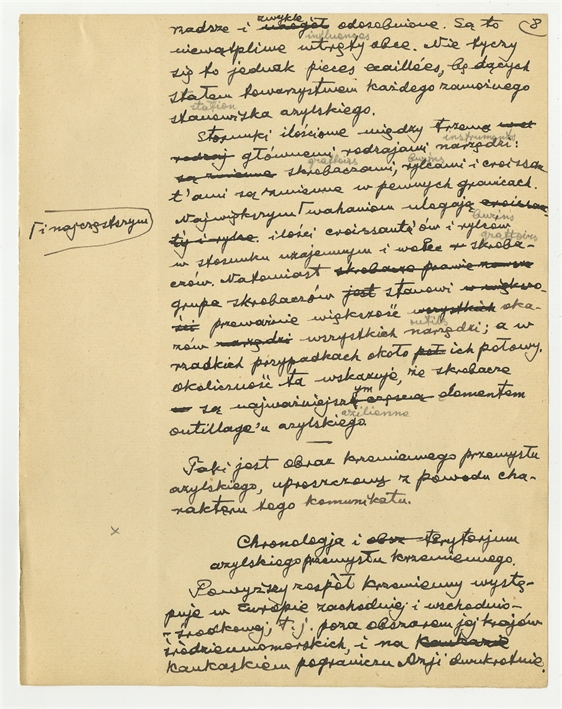 8
zwykle
nadsze i ogół odosobnione. Są to
influences
niewątpliwe wtręty obce. Nie tyczy
się to jednak pièces écaillées, będących
stałem towarzystwem każdego zamożnego
station
stanowiska azylskiego.
Stosunki ilościowe między trzema
instruments
rodzaj głównemi rodzajami narzędzi:
grattoirs burins
są zmienne skrobaczami, rylcami i croissan
t'ami są zmienne w pewnych granicach.
Γ i najczęstszym
Największym Γ wahaniom ulegają croissan
burins
ty i rylce. ilości croissant'ów i rylców
grattoirs
w stosunku wzajemnym i wobec skroba-
czów. Natomiast skrobacze prawie zawsze
grupa skrobaczów jest stanowi w większo
ści przeważnie większość wszystkich oka-
outils
zów narzędzi wszystkich narzędzi; a w
rzadkich przypadkach około poł ich połowy.
Okoliczność ta wskazuje, że skrobacze
ym
są najważniejszą częścią elementem
azilienne
outillage'u azylskiego
Taki jest obraz krzemiennego przemysłu
azylskiego, uproszczony z powodu cha-
rakteru tego komunikatu.
x
Chronologja i obsz terytorjum
azylskiego przemysłu krzemiennego.
Powyższy zespół krzemienny wystę-
puje w Europie zachodniej i wschodnio-
-środkowej, t.j. poza obszarem jej krajów
śródziemnomorskich, i na Kaukazie
kaukaskiem pograniczu Azji dwukrotnie.